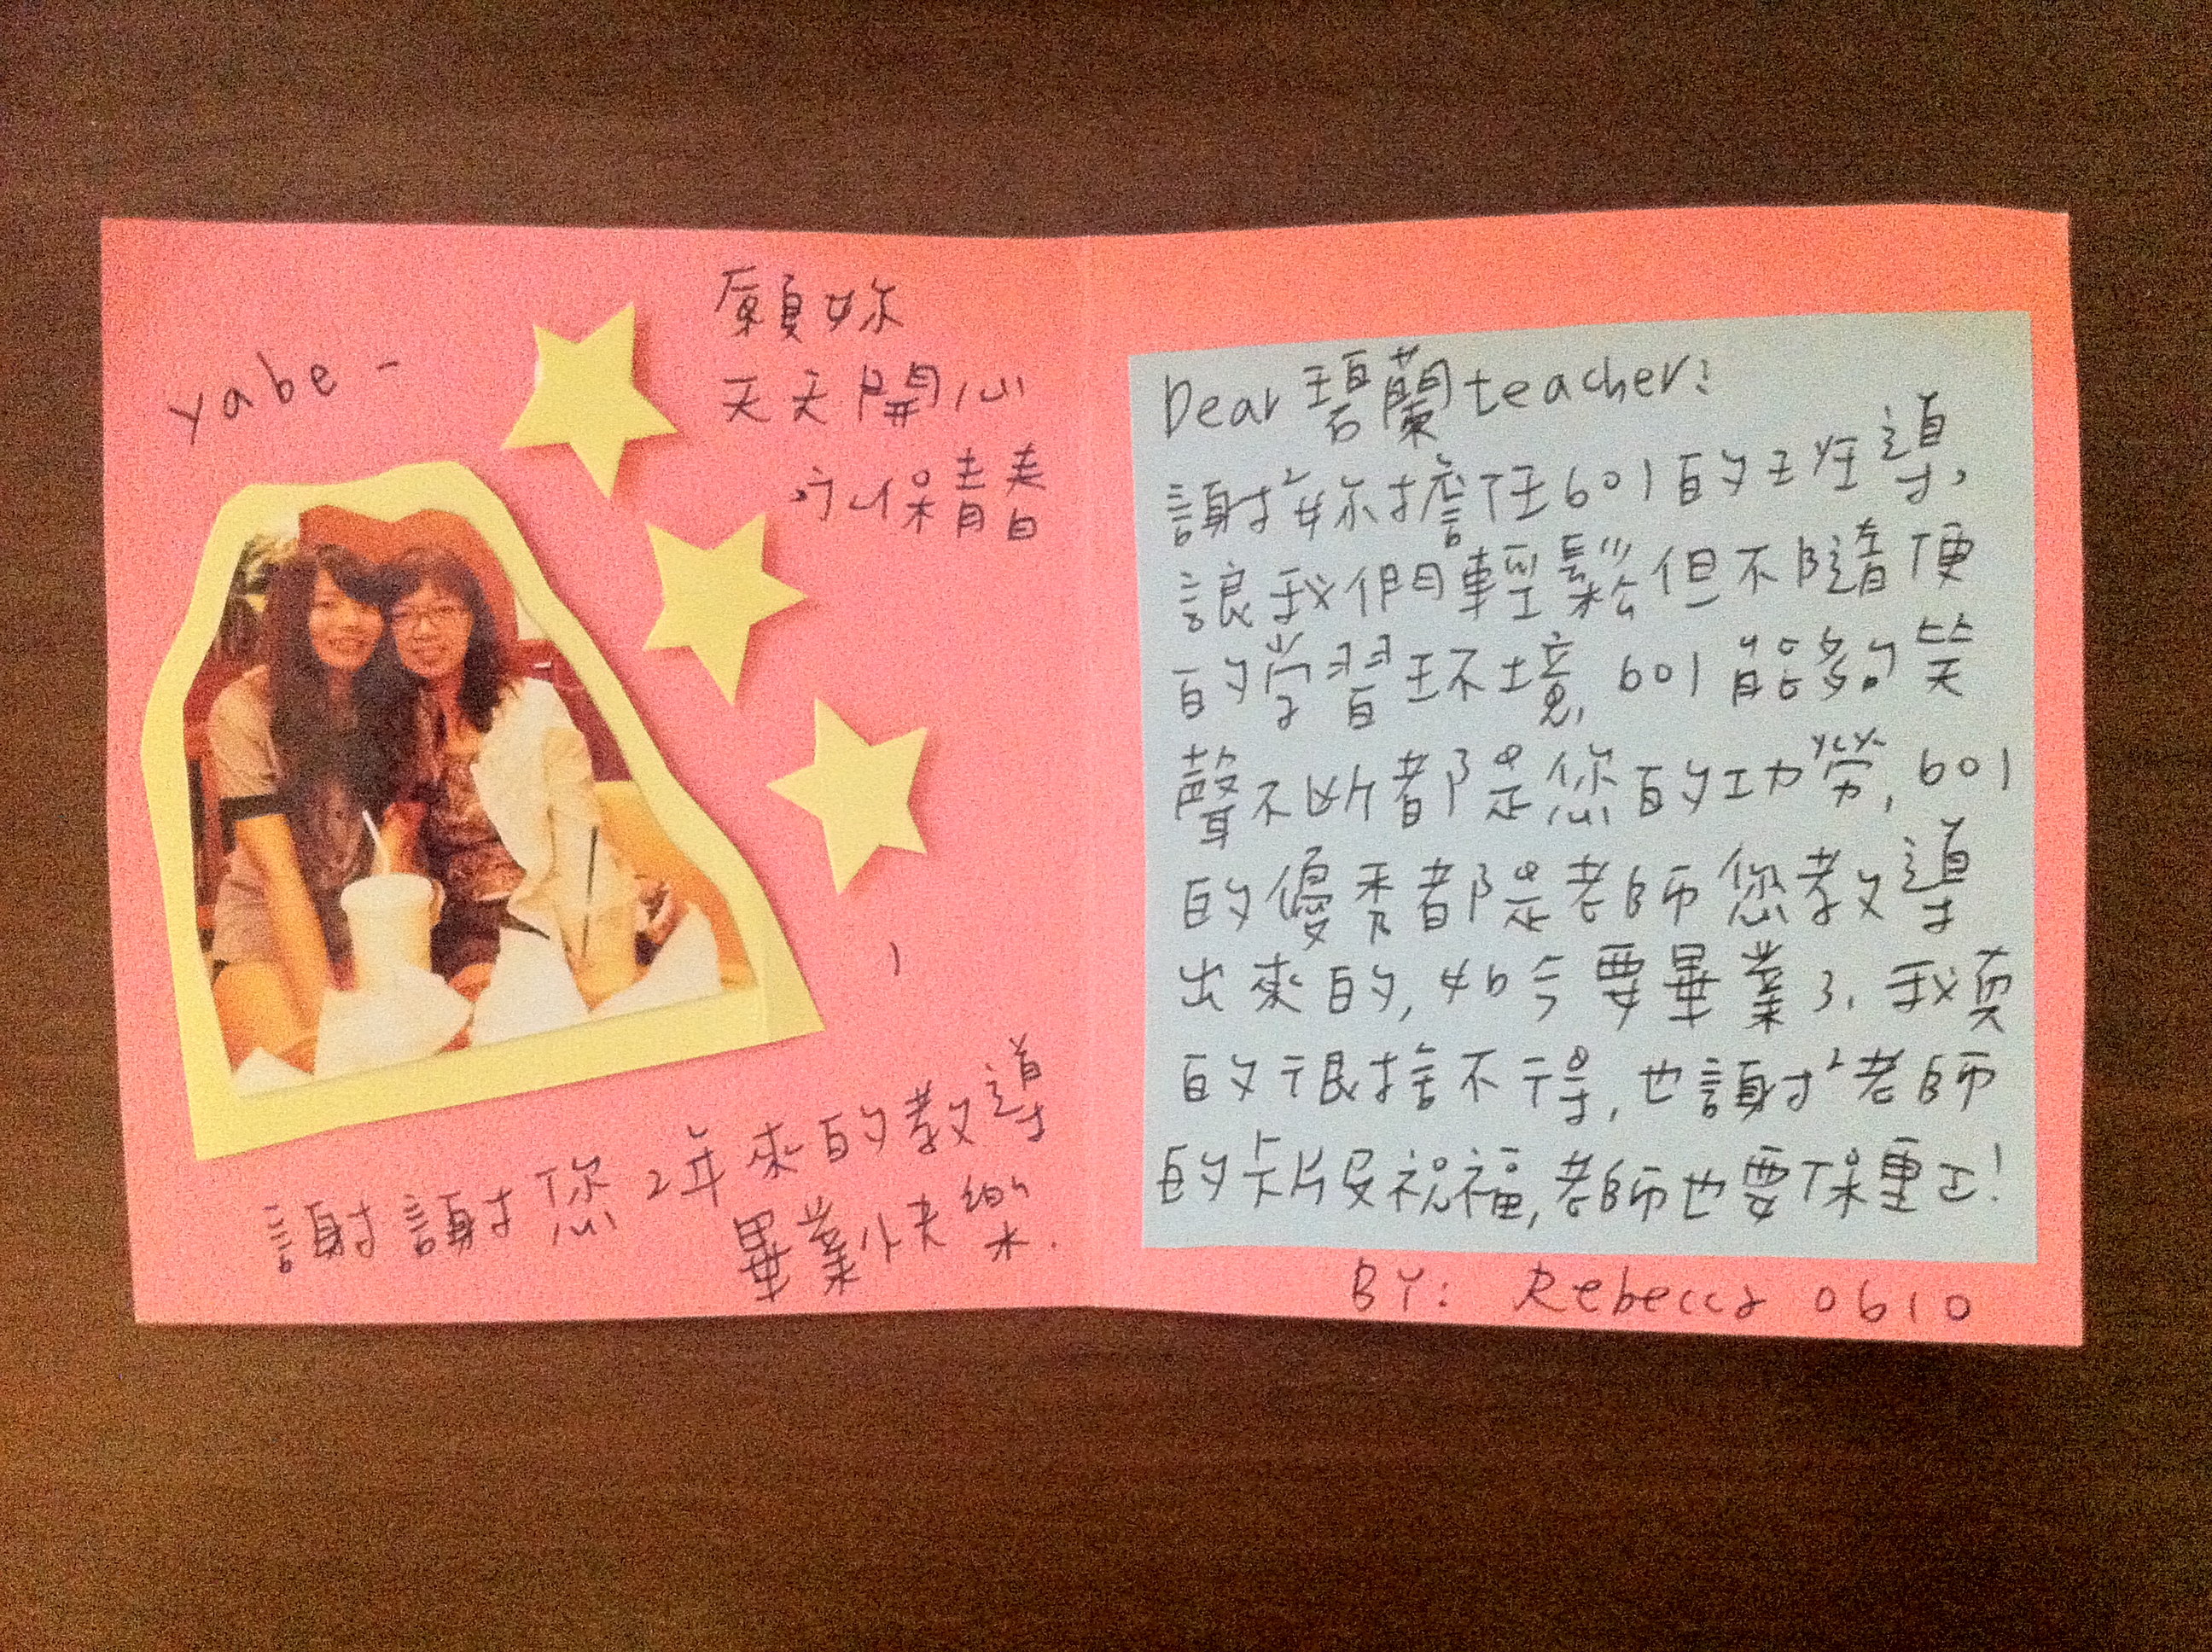 yabe -
願妳
天天開心
永保青春
謝謝您2年來的教導
畢業快樂.
Dear 碧蘭 teacher:
謝²妳擔任601的班導,
讓我們輕鬆但不隨便
的學習環境, 601能夠笑
聲不斷都是您的功勞, 601
的優秀都是老師您教導
出來的, 如今要畢業了, 我真
的很捨不得, 也謝²老師
的卡片及祝福, 老師也要保重ㄛ!
BY: Rebecca 0610